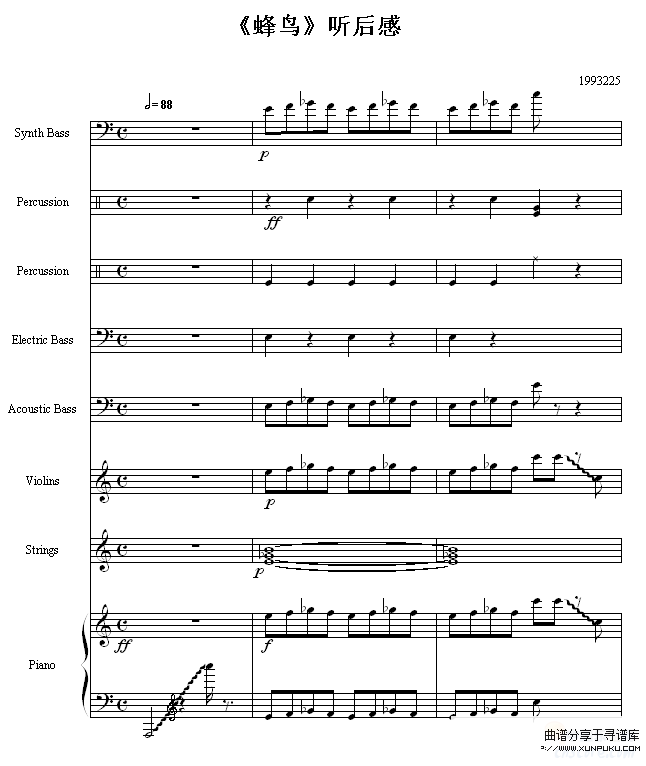 《蜂鸟》听后感
1993225
=88
Synth Bass
p
Percussion
ff
Percussion
Electric Bass
Acoustic Bass
Violins
p
Strings
p
ff
f
Piano
曲谱分享于寻谱库
WWW.XUNPUKU.COM